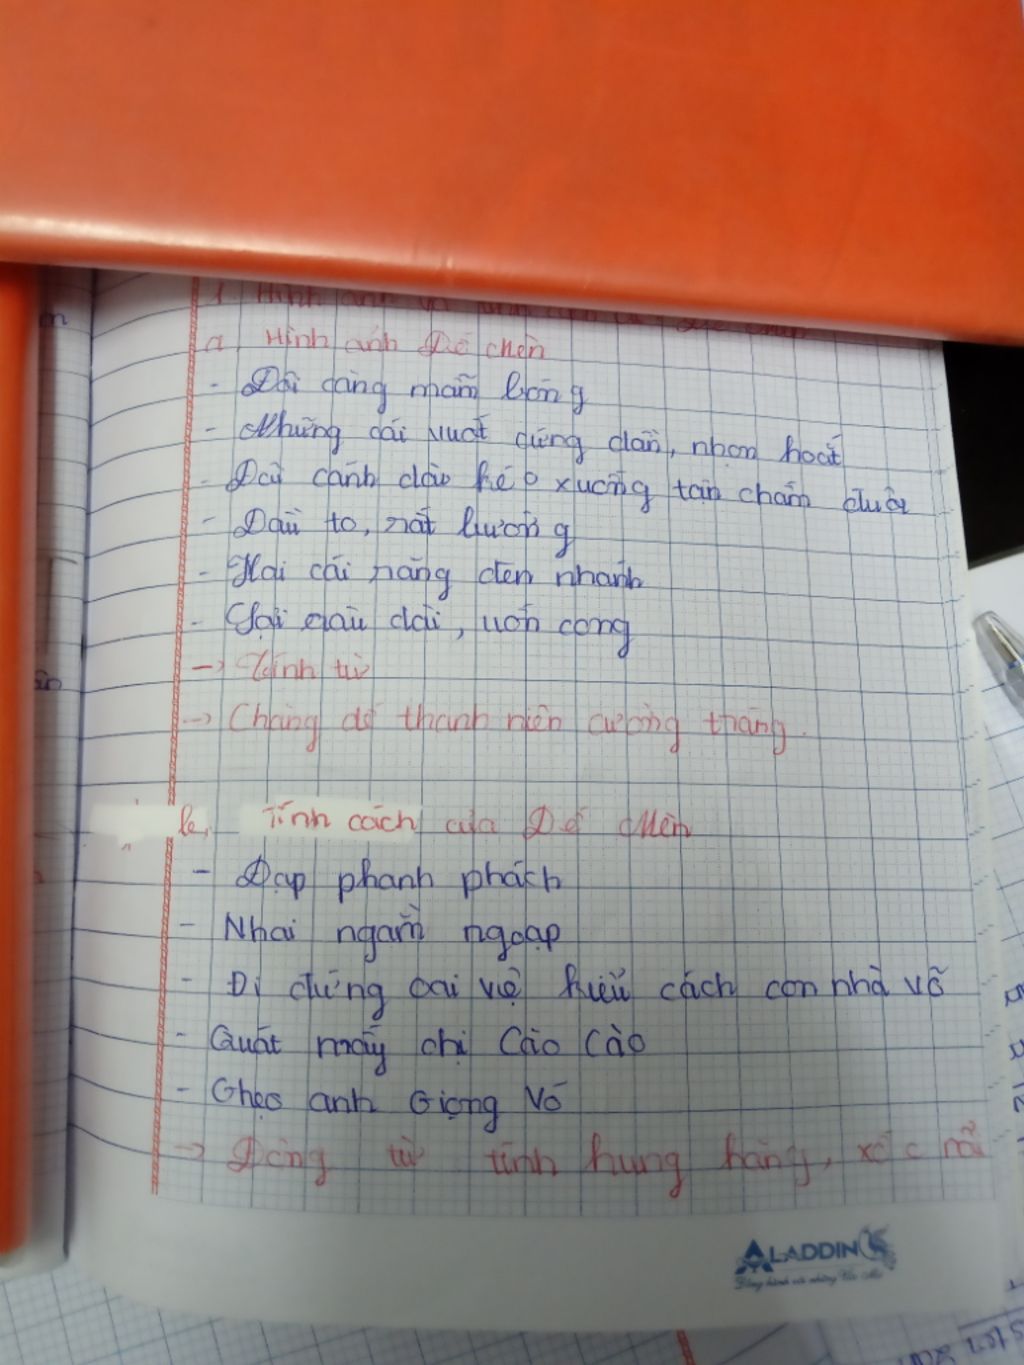 1. Hình ảnh và
a, Hình ảnh Dế chèn
- Đôi càng mẫm bóng
- Những cái vuốt cứng dần, nhọn hoắt
- Đôi cánh dài kép xuống tận chấm đuôi
- Đầu to, rất bướng
- Hai cái răng đen nhánh
- Sợi râu dài, uốn cong
-> Tính từ
-> Chàng dế thanh niên cường tráng.
b, Tính cách của Dế Mèn
- Đạp phanh phách
- Nhai ngoàm ngoạp
- Đi đứng oai vệ kiểu cách con nhà võ
- Quát mấy chị Cào Cào
- Ghẹo anh Giọng Vó
-> Động từ tính hung hăng, xốc nổi
ALADDIN